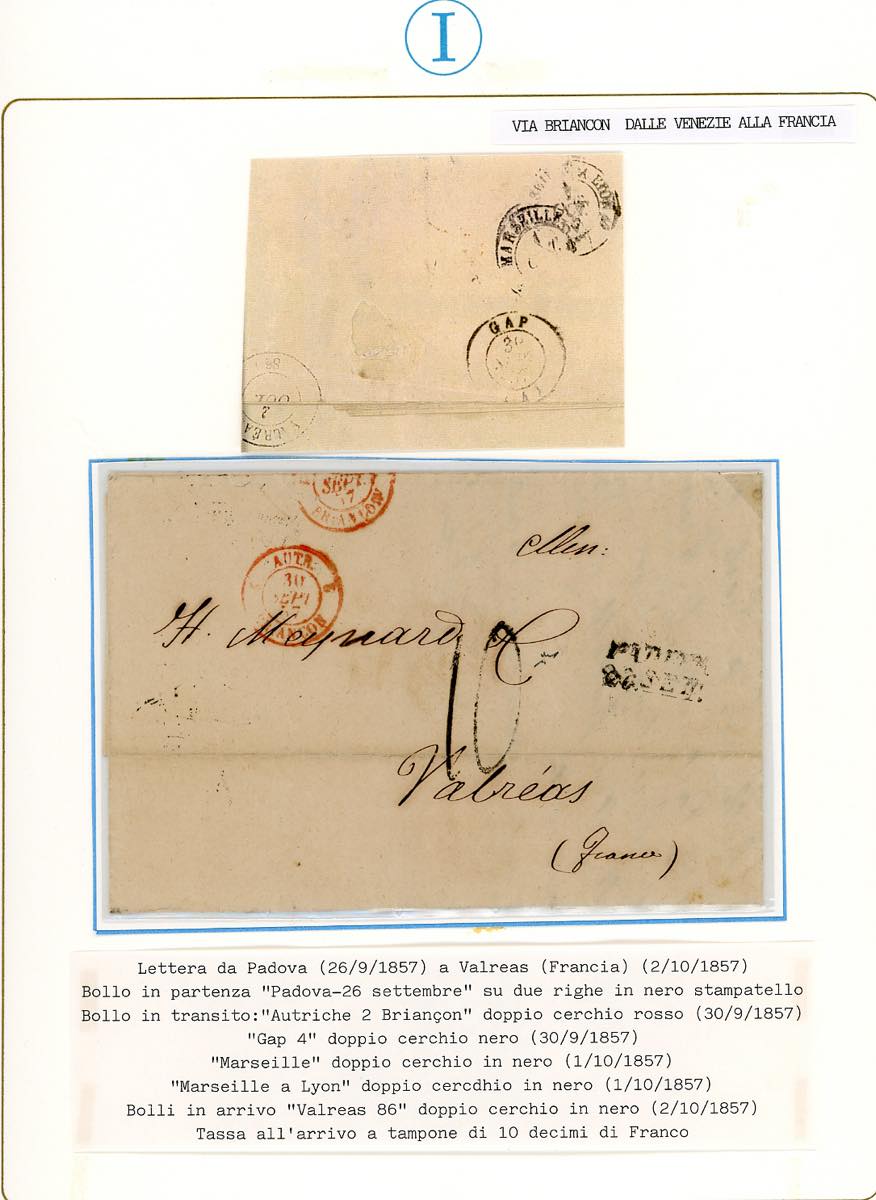 I
VIA BRIANCON DALLE VENEZIE ALLA FRANCIA
MARSEILLE
GAP
30
86
OCT
2
VALRÉAS
SEPT.
57
BRIANÇON
AUTR.
30
SEPT
57
BRIANÇON
H. Meynard & C
10
26 SET.
Valréas
(France)
Lettera da Padova (26/9/1857) a Valreas (Francia) (2/10/1857)
Bollo in partenza "Padova-26 settembre" su due righe in nero stampatello
Bollo in transito:"Autriche 2 Briançon" doppio cerchio rosso (30/9/1857)
"Gap 4" doppio cerchio nero (30/9/1857)
"Marseille" doppio cerchio in nero (1/10/1857)
"Marseille a Lyon" doppio cercdhio in nero (1/10/1857)
Bolli in arrivo "Valreas 86" doppio cerchio in nero (2/10/1857)
Tassa all'arrivo a tampone di 10 decimi di Franco